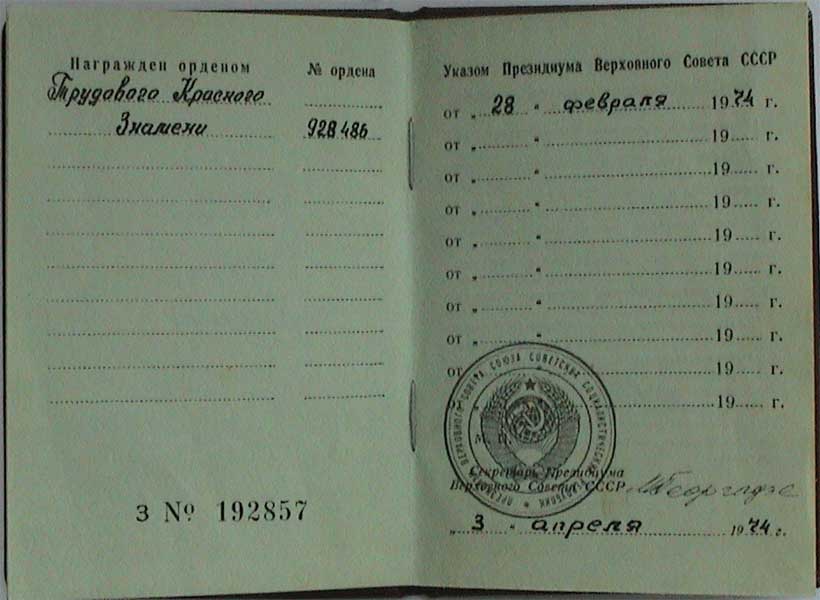 Награжден орденом
№ ордена
Трудового Красного
Знамени
928486
З № 192857
Указом Президиума Верховного Совета СССР
от „ 28 “ февраля 1974 г.
от „ “ 19 г.
от „ “ 19 г.
от „ “ 19 г.
от „ “ 19 г.
от „ “ 19 г.
от „ “ 19 г.
от „ “ 19 г.
от „ “ 19 г.
19 г.
ПРЕЗИДИУМ ВЕРХОВНОГО СОВЕТА СОЮЗА СОВЕТСКИХ СОЦИАЛИСТИЧЕСКИХ РЕСПУБЛИК
М. П.
Секретарь Президиума
Верховного Совета СССР МГеоргадзе
„ 3 “ апреля 1974 г.